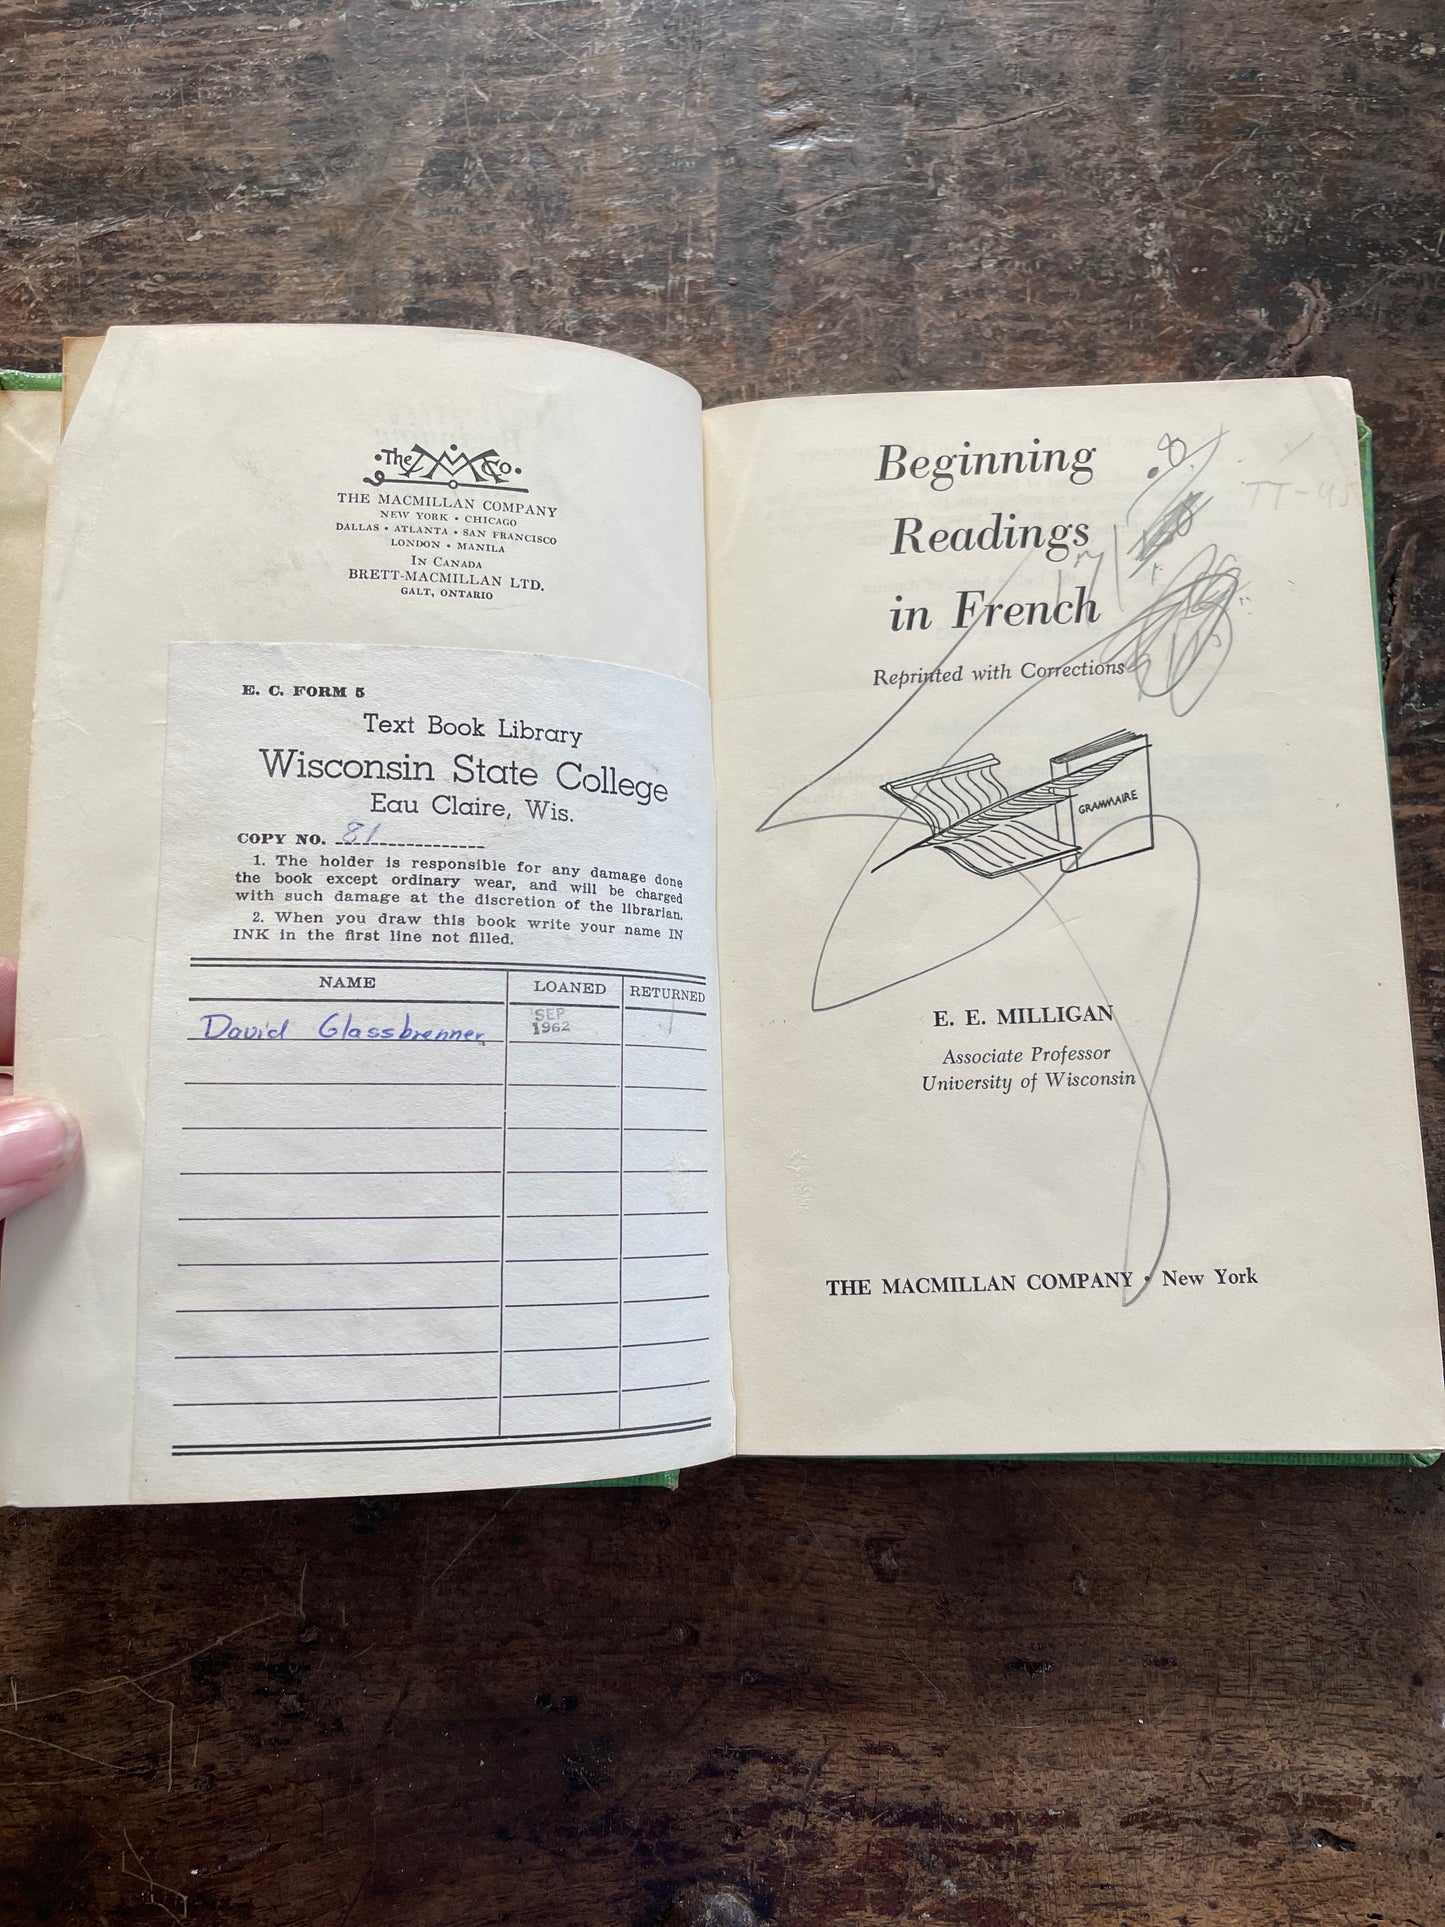 The M Co.
THE MACMILLAN COMPANY
NEW YORK • CHICAGO
DALLAS • ATLANTA • SAN FRANCISCO
LONDON • MANILA
IN CANADA
BRETT-MACMILLAN LTD.
GALT, ONTARIO
E. C. FORM 5
Text Book Library
Wisconsin State College
Eau Claire, Wis.
COPY NO. 81
1. The holder is responsible for any damage done
the book except ordinary wear, and will be charged
with such damage at the discretion of the librarian.
2. When you draw this book write your name IN
INK in the first line not filled.
NAME LOANED RETURNED
David Glassbrenner SEP 1962
Beginning
Readings
in French
Reprinted with Corrections
GRAMMAIRE
E. E. MILLIGAN
Associate Professor
University of Wisconsin
THE MACMILLAN COMPANY • New York
TT-45